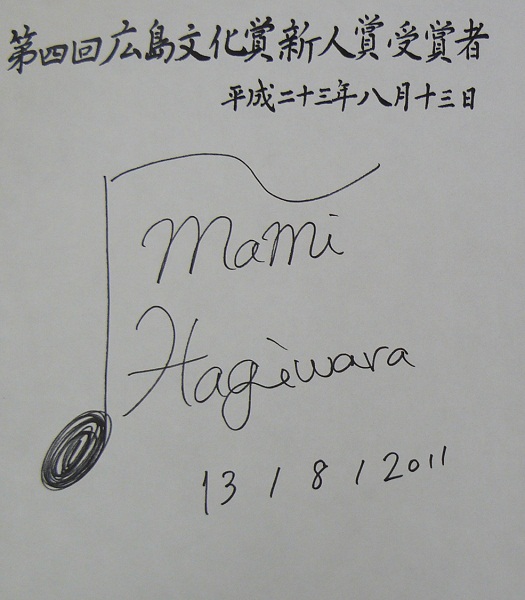 第四回広島文化賞新人賞受賞者
平成二十三年八月十三日
Mami
Hagiwara
13 / 8 / 2011